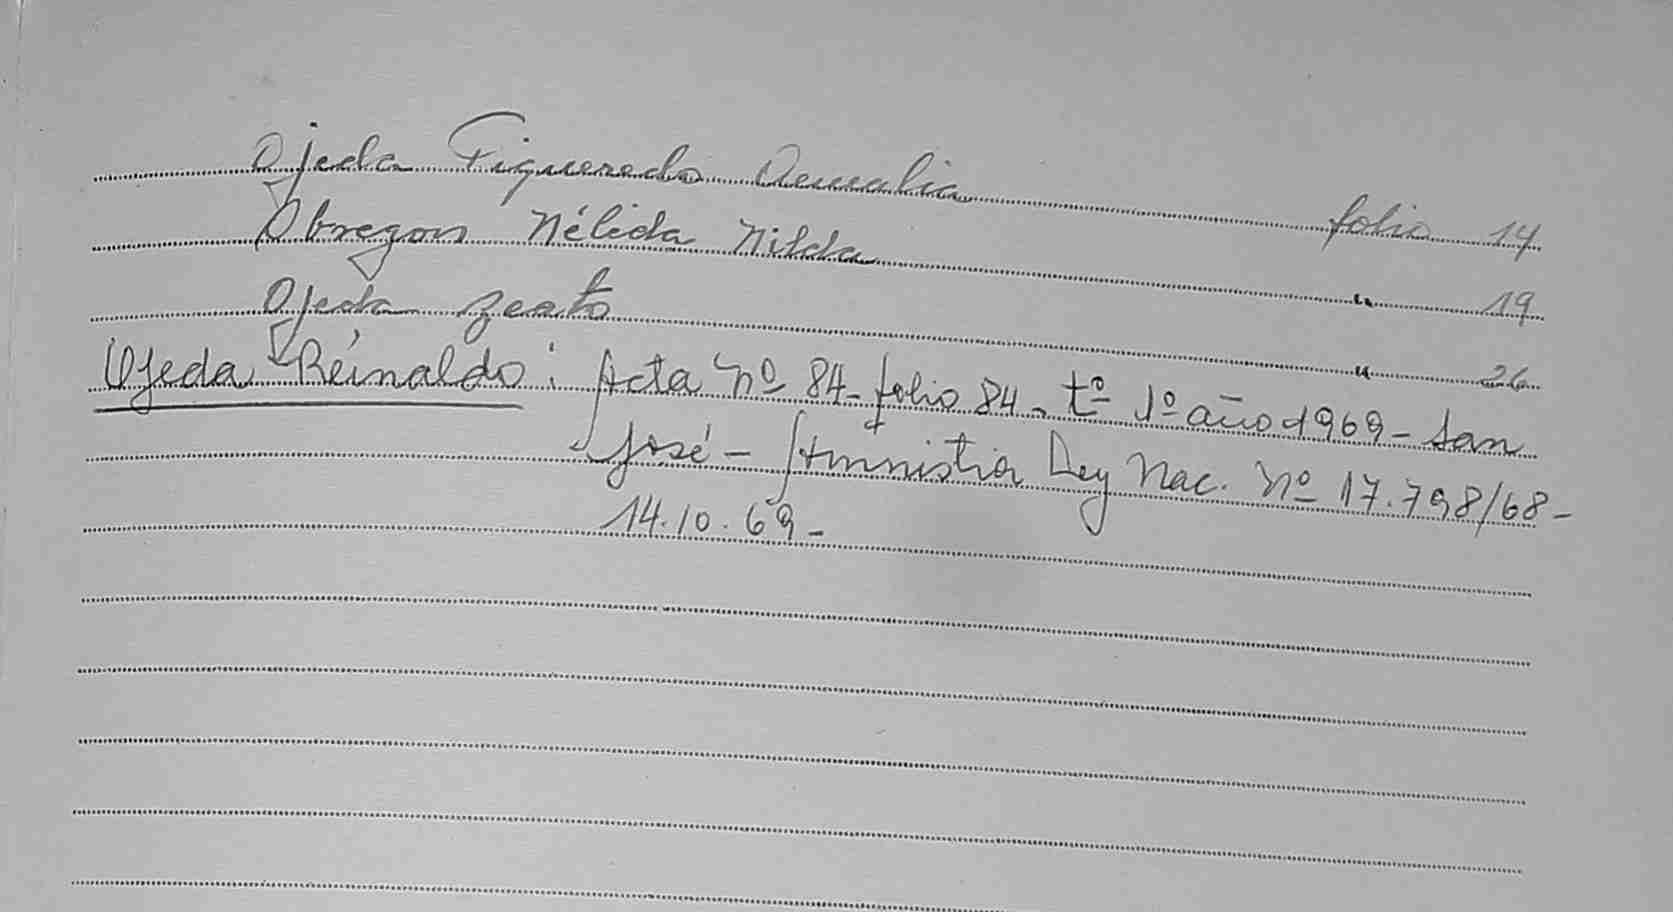 Ojeda Figueredo Amalia folio 14
Obregon Nélida Nilda " 19
Ojeda " 26
Ojeda Reinaldo: Acta Nº 84 - folio 84 - tº 1º año 1969 - San
José - Amnistia Ley Nac. Nº 17.798/68 -
14.10.69 -